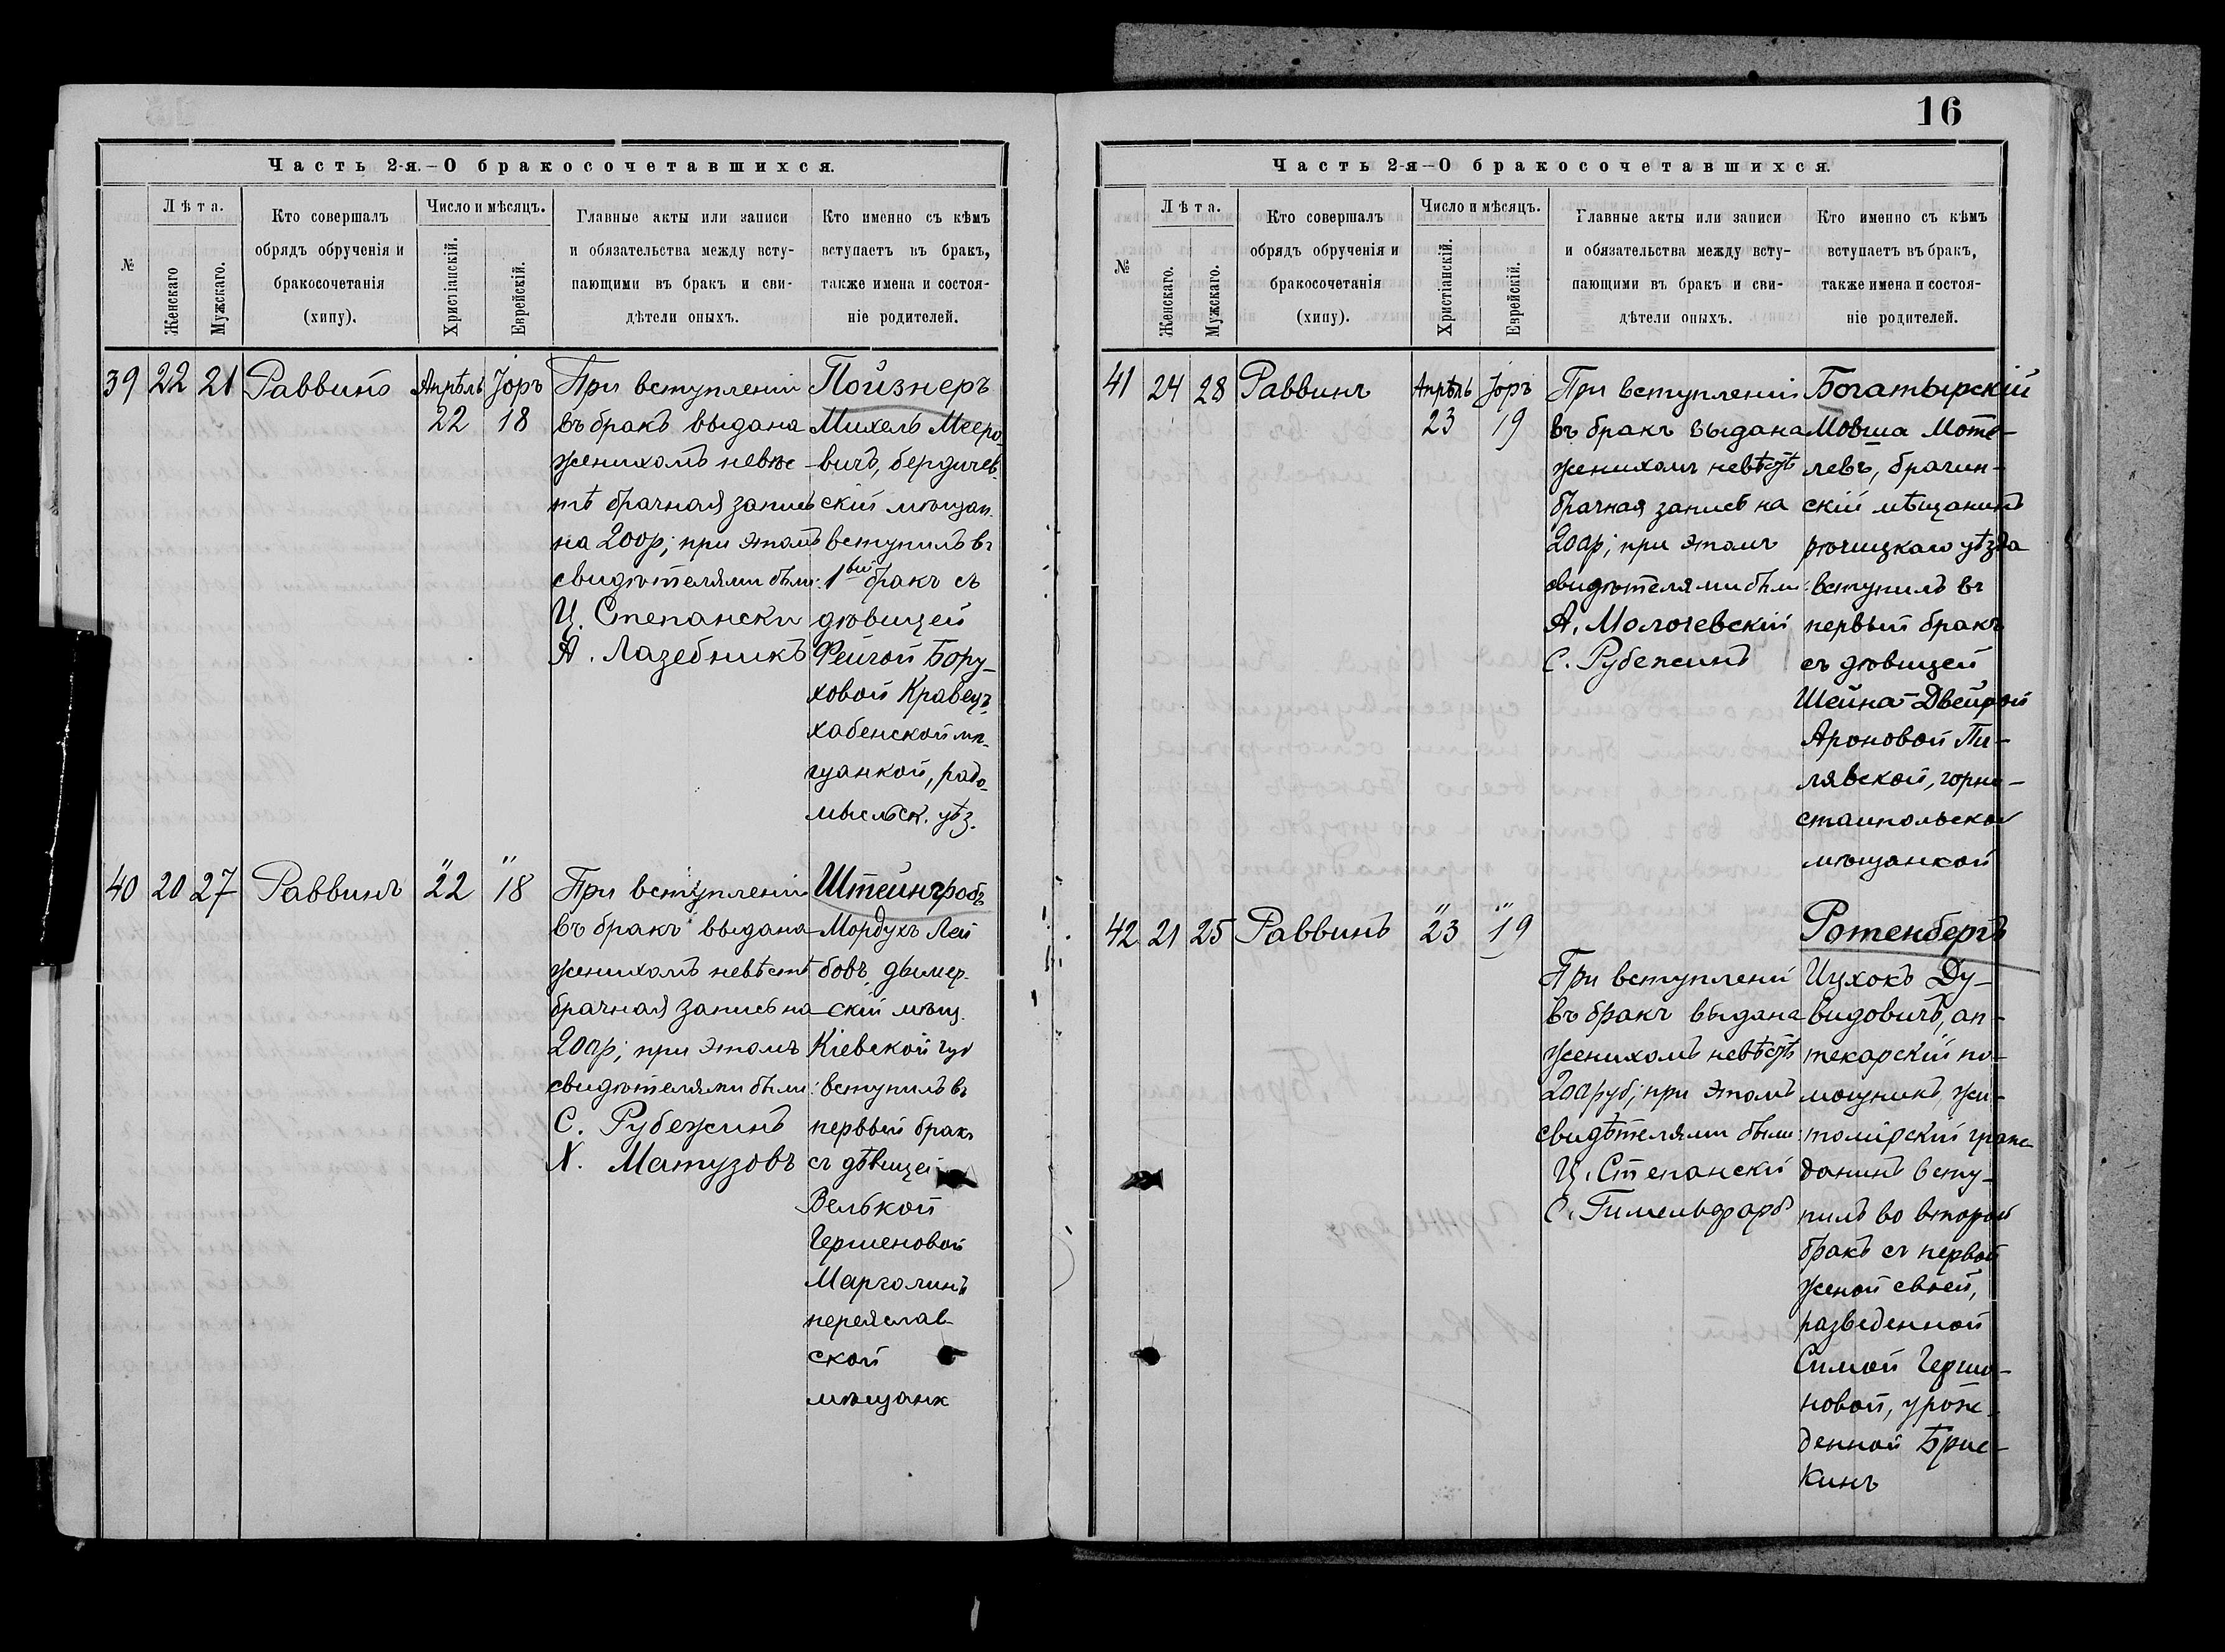 16
Часть 2-я.–О бракосочетавшихся.
№
Лѣта.
Женскаго
Мужскаго.
Кто совершалъ
обрядъ обрученія и
бракосочетанія
(хипу).
Число и мѣсяцъ.
Христіанскій.
Еврейскій.
Главные акты или записи
и обязательства между всту-
пающими въ бракъ и сви-
дѣтели оныхъ.
Кто именно съ кѣмъ
вступаетъ въ бракъ,
также имена и состоя-
ніе родителей.
39 22 21 Раввинъ Апрѣль 22 Іоръ 18
При вступленіи
въ бракъ выдана
женихомъ невѣс-
тѣ брачная запись
на 200р; при этомъ
свидѣтелями были:
Ц. Степански
А. Лазебникъ
Пойзнеръ
Михель Мееро-
вичъ, бердичев-
скій мѣщан.
вступилъ въ
1вый бракъ съ
дѣвицей
Фейгой Бору-
ховой Кравецъ,
хабенской мѣ-
щанкой, радо-
мысльск. уѣз.
40 20 27 Раввинъ " 22 " 18
При вступленіи
въ бракъ выдана
женихомъ невѣстѣ
брачная запись на
200р; при этомъ
свидѣтелями были:
С. Рубежинъ
Х. Матузовъ
Штейнгробъ
Мордухъ Лей
бовъ, дымер-
скій мѣщ.
Кіевской губ
вступилъ въ
первый бракъ
съ дѣвицей
Велькой
Гершеновой
Марголинъ
переяслав-
ской
мѣщанк
Часть 2-я–О бракосочетавшихся.
№
Лѣта.
Женскаго.
Мужскаго.
Кто совершалъ
обрядъ обрученія и
бракосочетанія
(хипу).
Число и мѣсяцъ.
Христіанскій.
Еврейскій.
Главные акты или записи
и обязательства между всту-
пающими въ бракъ и сви-
дѣтели оныхъ.
Кто именно съ кѣмъ
вступаетъ въ бракъ,
также имена и состоя-
ніе родителей.
41 24 28 Раввинъ Апрѣль 23 Іоръ 19
При вступленіи
въ бракъ выдана
женихомъ невѣстѣ
брачная запись на
200р; при этомъ
свидѣтелями были:
А. Молочевскій
С. Рубежинъ
Богатырскій
Мовша Моте-
левъ, брагин-
скій мѣщанинъ
рѣчицкаго уѣзда
вступилъ въ
первый бракъ
съ дѣвицей
Шейна-Двейрой
Ароновой Пи-
лявской, горно-
стаипольской
мѣщанкой
42 21 25 Раввинъ " 23 " 19
При вступлени
въ бракъ выдана
женихомъ невѣстѣ
200руб; при этомъ
свидѣтелями были:
Ц. Степанскі
С. Гимельфарб
Ротенбергъ
Ицхокъ Ду-
видовичъ, ап-
текарскій по-
мощникъ, жи-
томірскій граж-
данинъ всту-
пилъ во второй
бракъ съ первой
женой своей,
разведенной
Симой Гершо-
новой, урож-
денной Брис-
кинъ